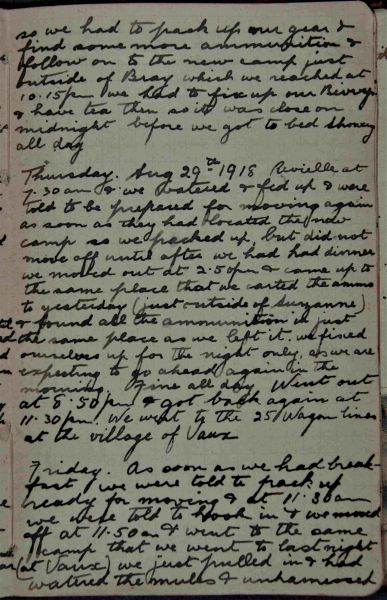 so we had to pack up our gear &
find some more ammunition &
follow on to the new camp just
outside of Bray which we reached at
10.15pm we had to fix up our Bivvys
& have tea then so it was close on
midnight before we got to bed showery
all day
Thursday. Aug 29th 1918 Revielle at
7.30am & we watered & fed up & were
told to be prepared for moving again
as soon as they had located the new
camp so we packed up, but did not
move off until after we had had dinner
we moved out at 2.50pm & came up to
the same place that we carted the ammo
to yesterday (just outside of Suzanne)
& found all the ammunition is just
the same place as we left it. we fixed
ourselves up for the night only, as we are
expecting to go ahead again in the
morning. Fine all day Went out
at 8.50pm & got back again at
11.30pm. We went to the 25 Wagon lines
at the village of Vaux
Friday. As soon as we had break-
fast we were told to pack up
ready for moving & at 11.30am
we were told to hook in & we moved
off at 11.50am & went to the same
camp that we went to last night
(at Vaux) we just pulled in & had
watered the mules & unharnessed